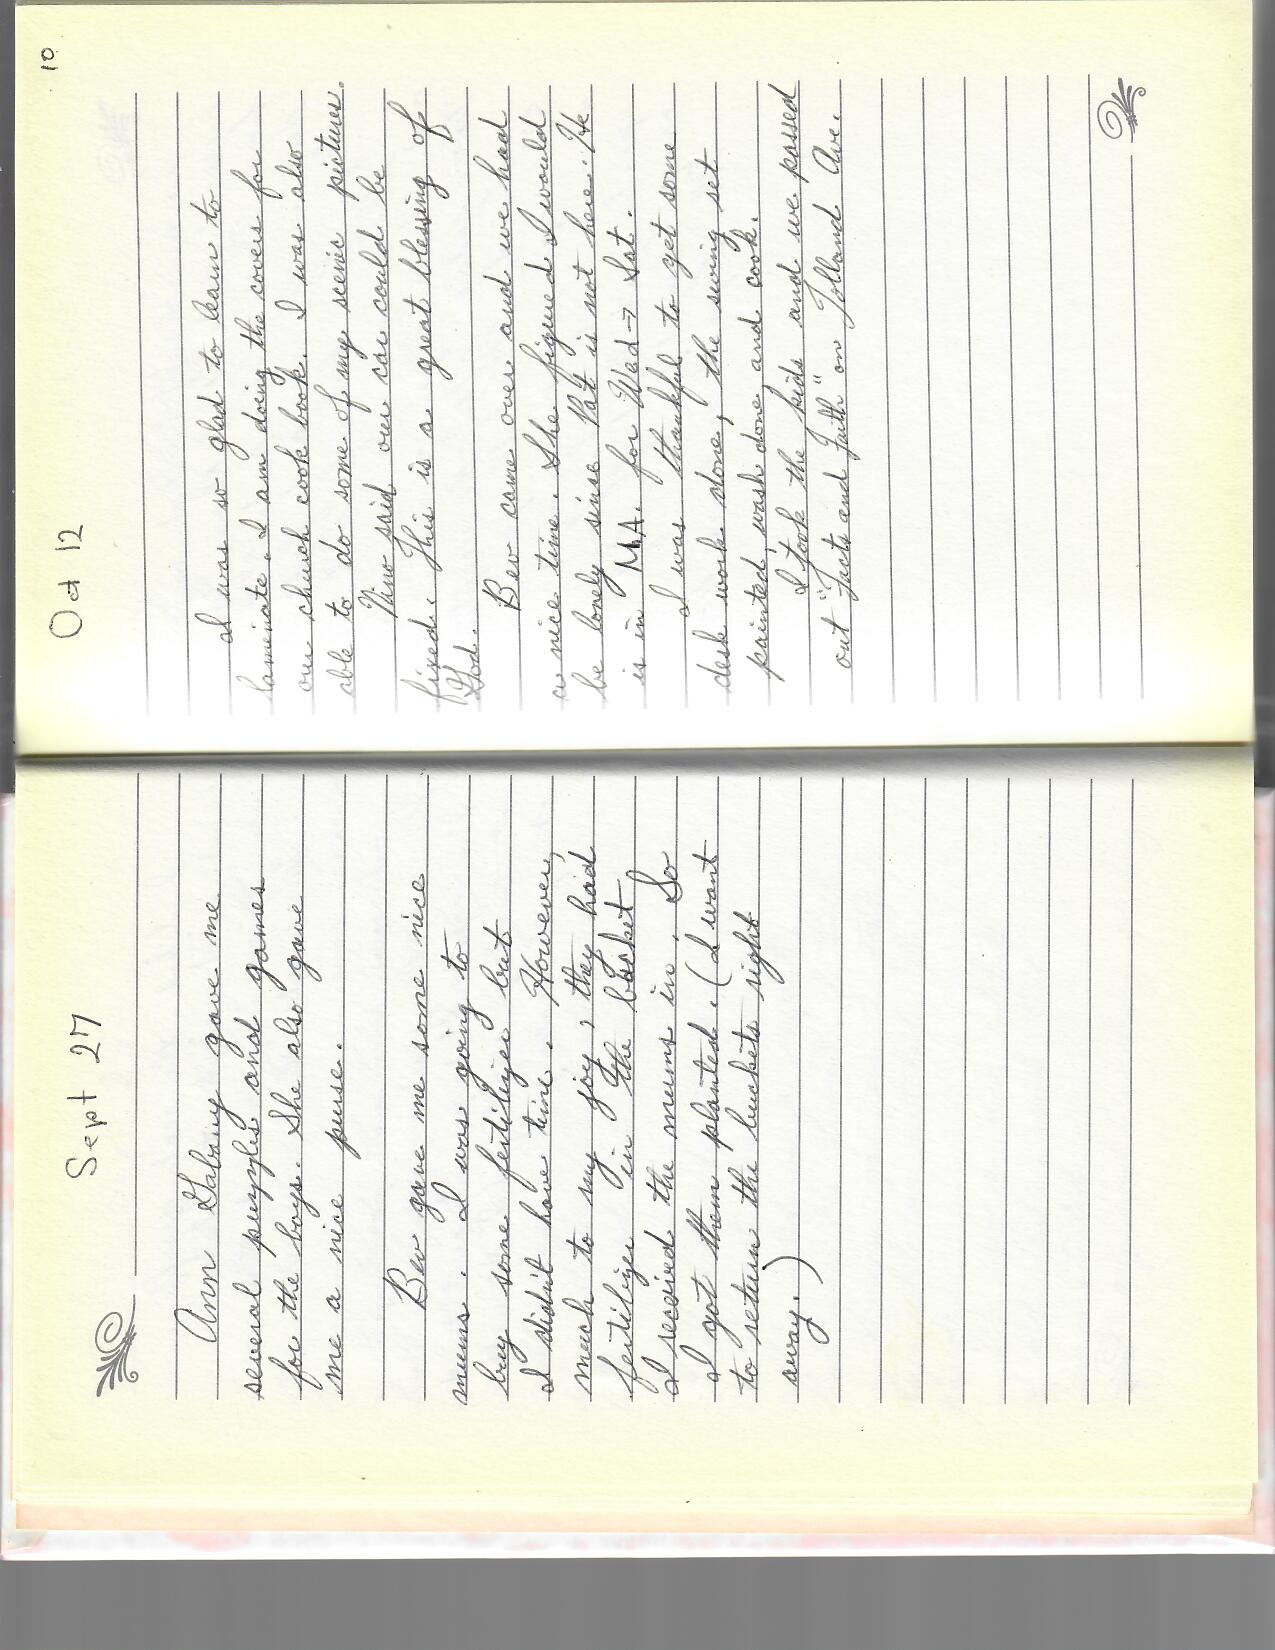 Sept 27
Ann Gabriny gave me
several puzzles and games
for the boys. She also gave
me a nice purse.
Bev gave me some nice
mums. I was going to
buy some fertilizer but
I didn't have time. However,
much to my joy, they had
fertilizer in the basket
I received the mums in. So
I got them planted. (I want
to return the buckets right
away.)
10
Oct 12
I was so glad to learn to
laminate. I am doing the covers for
our church cook book. I was also
able to do some of my scenic pictures.
Nino said our car could be
fixed. This is a great blessing of
God.
Bev came over and we had
a nice time. She figured I would
be lonely since Pat is not here. He
is in MA. for Wed → Sat.
I was thankful to get some
desk work done, the swing set
painted, wash done, and cook.
I took the kids and we passed
out "Facts and Faith" on Tolland Ave.